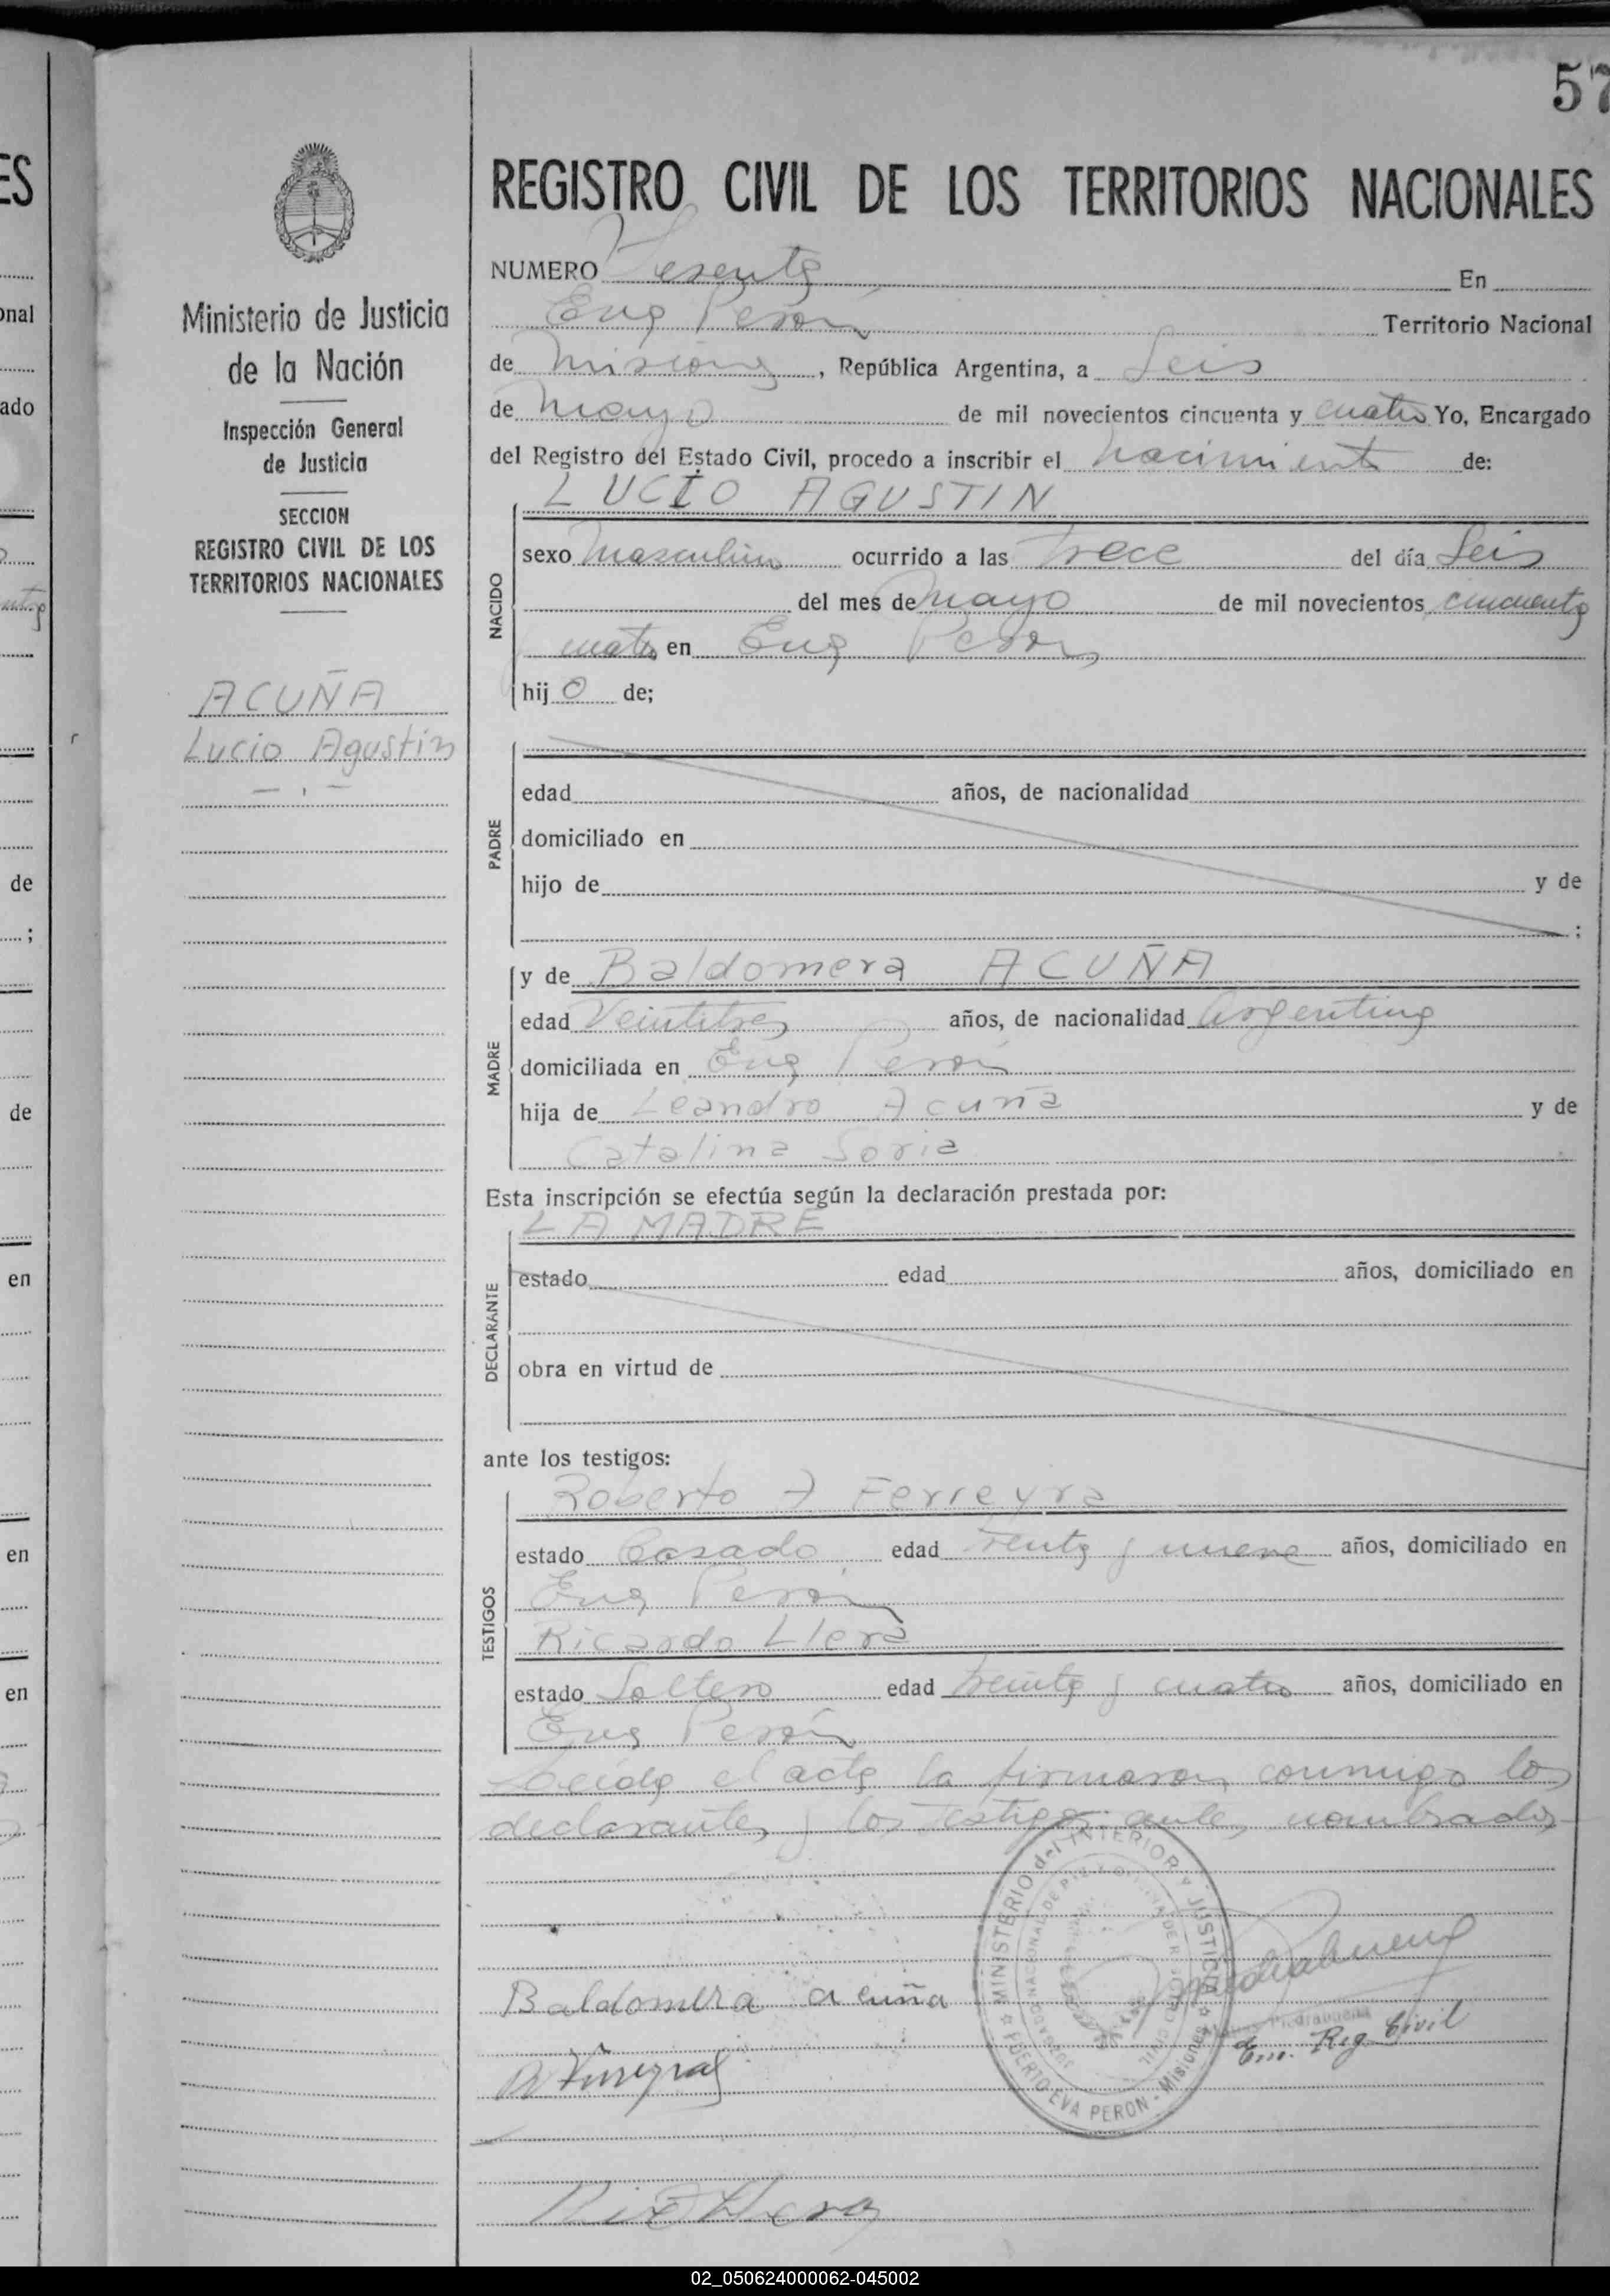 57
REGISTRO CIVIL DE LOS TERRITORIOS NACIONALES
NUMERO Sesenta En
Eva Perón Territorio Nacional
de Misiones, República Argentina, a Seis
de Mayo de mil novecientos cincuenta y cuatro Yo, Encargado
del Registro del Estado Civil, procedo a inscribir el nacimiento de:
LUCIO AGUSTIN
NACIDO
sexo Masculino ocurrido a las trece del día Seis
del mes de Mayo de mil novecientos cincuenta
cuatro en Eva Perón
hij o de;
PADRE
edad años, de nacionalidad
domiciliado en
hijo de y de
;
MADRE
y de Baldomera ACUÑA
edad Veintitres años, de nacionalidad Argentina
domiciliada en Eva Perón
hija de Leandro Acuña y de
Catalina Soria
Esta inscripción se efectúa según la declaración prestada por:
LA MADRE
DECLARANTE
estado edad años, domiciliado en
obra en virtud de
ante los testigos:
TESTIGOS
Roberto A Ferreyra
estado Casado edad treinta y nueve años, domiciliado en
Eva Perón
Ricardo Llera
estado Soltero edad treinta y cuatro años, domiciliado en
Eva Perón
Leida el acta la firmaron conmigo los
declarantes y los testigos antes nombrados
Baldomera acuña
Piedrabuena
Enc. Reg. Civil
MINISTERIO del INTERIOR y JUSTICIA
EVA PERON - Misiones
Ministerio de Justicia
de la Nación
Inspección General
de Justicia
SECCION
REGISTRO CIVIL DE LOS
TERRITORIOS NACIONALES
ACUÑA
Lucio Agustin
02_050624000062-045002